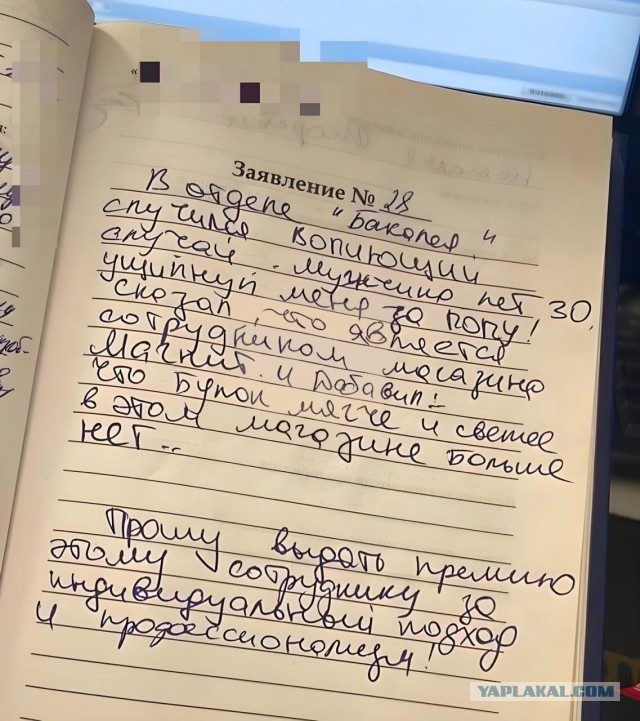 Заявление № 28
В отделе "Бакалея"
случился вопиющий
случай. Мужчина лет 30,
ущипнул меня за попу!
сказал, что является
сотрудником магазина
Магнит. и добавил:
что булок мягче и свежее
в этом магазине больше
нет...
Прошу выдать премию
этому сотруднику за
индивидуальный подход
и профессионализм!
YAPLAKAL.COM